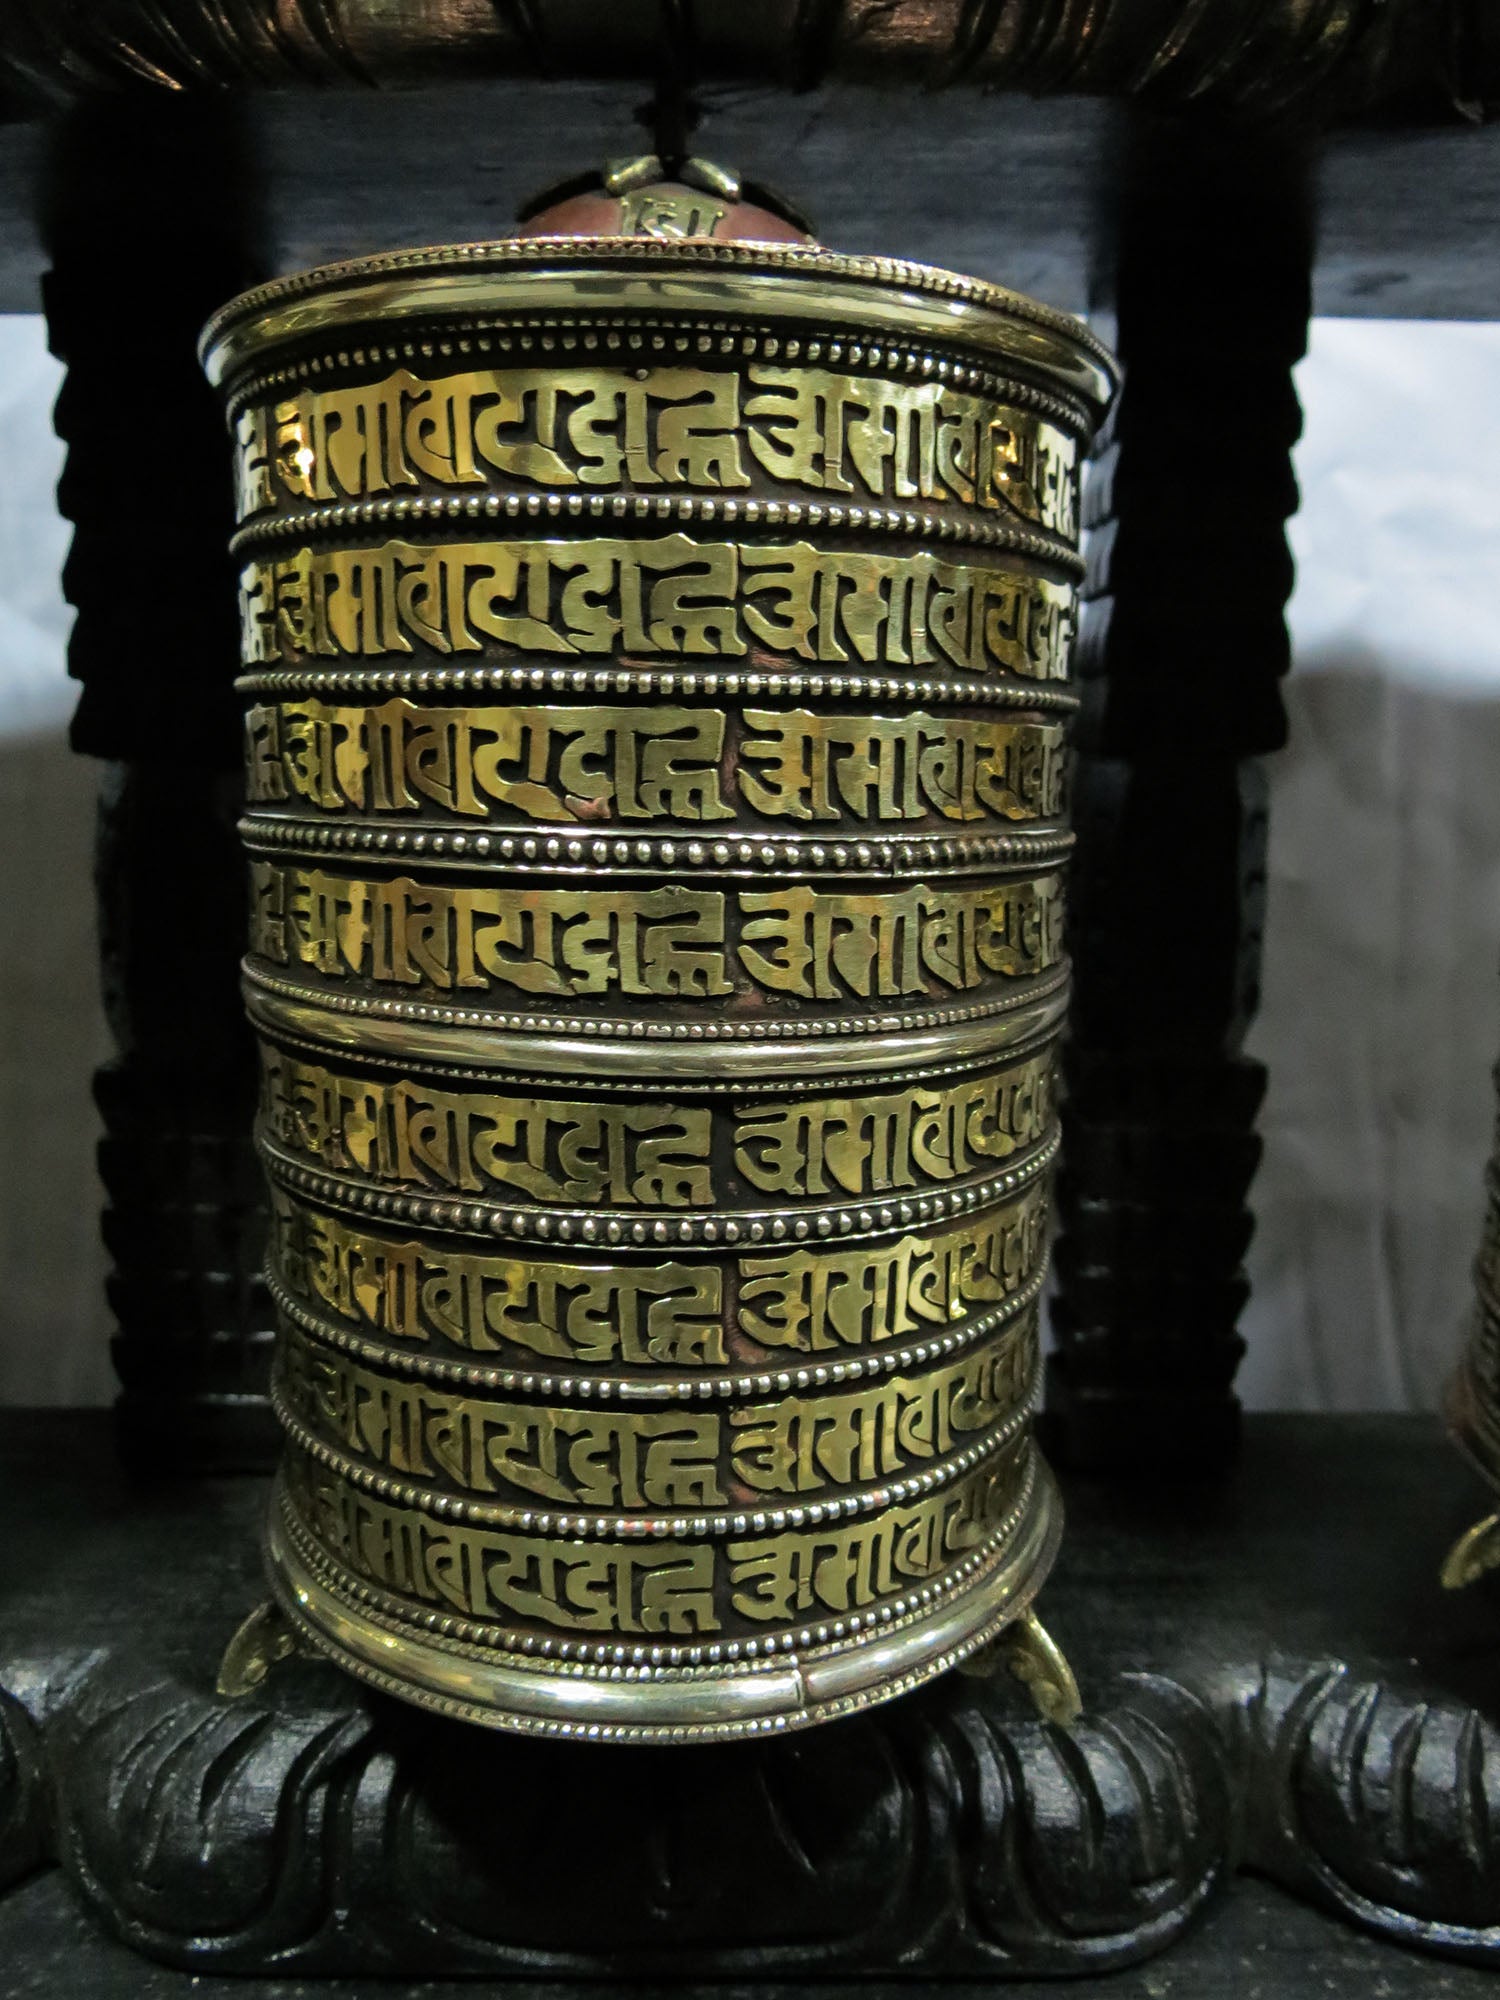 ॐ मणिपद्मे हूँ ॐ मणिपद्मे
ॐ मणिपद्मे हूँ ॐ मणिपद्मे
ॐ मणिपद्मे हूँ ॐ मणिपद्मे
ॐ मणिपद्मे हूँ ॐ मणिपद्मे
ॐ मणिपद्मे हूँ ॐ मणिपद्मे
ॐ मणिपद्मे हूँ ॐ मणिपद्मे
ॐ मणिपद्मे हूँ ॐ मणिपद्मे
ॐ मणिपद्मे हूँ ॐ मणिपद्मे